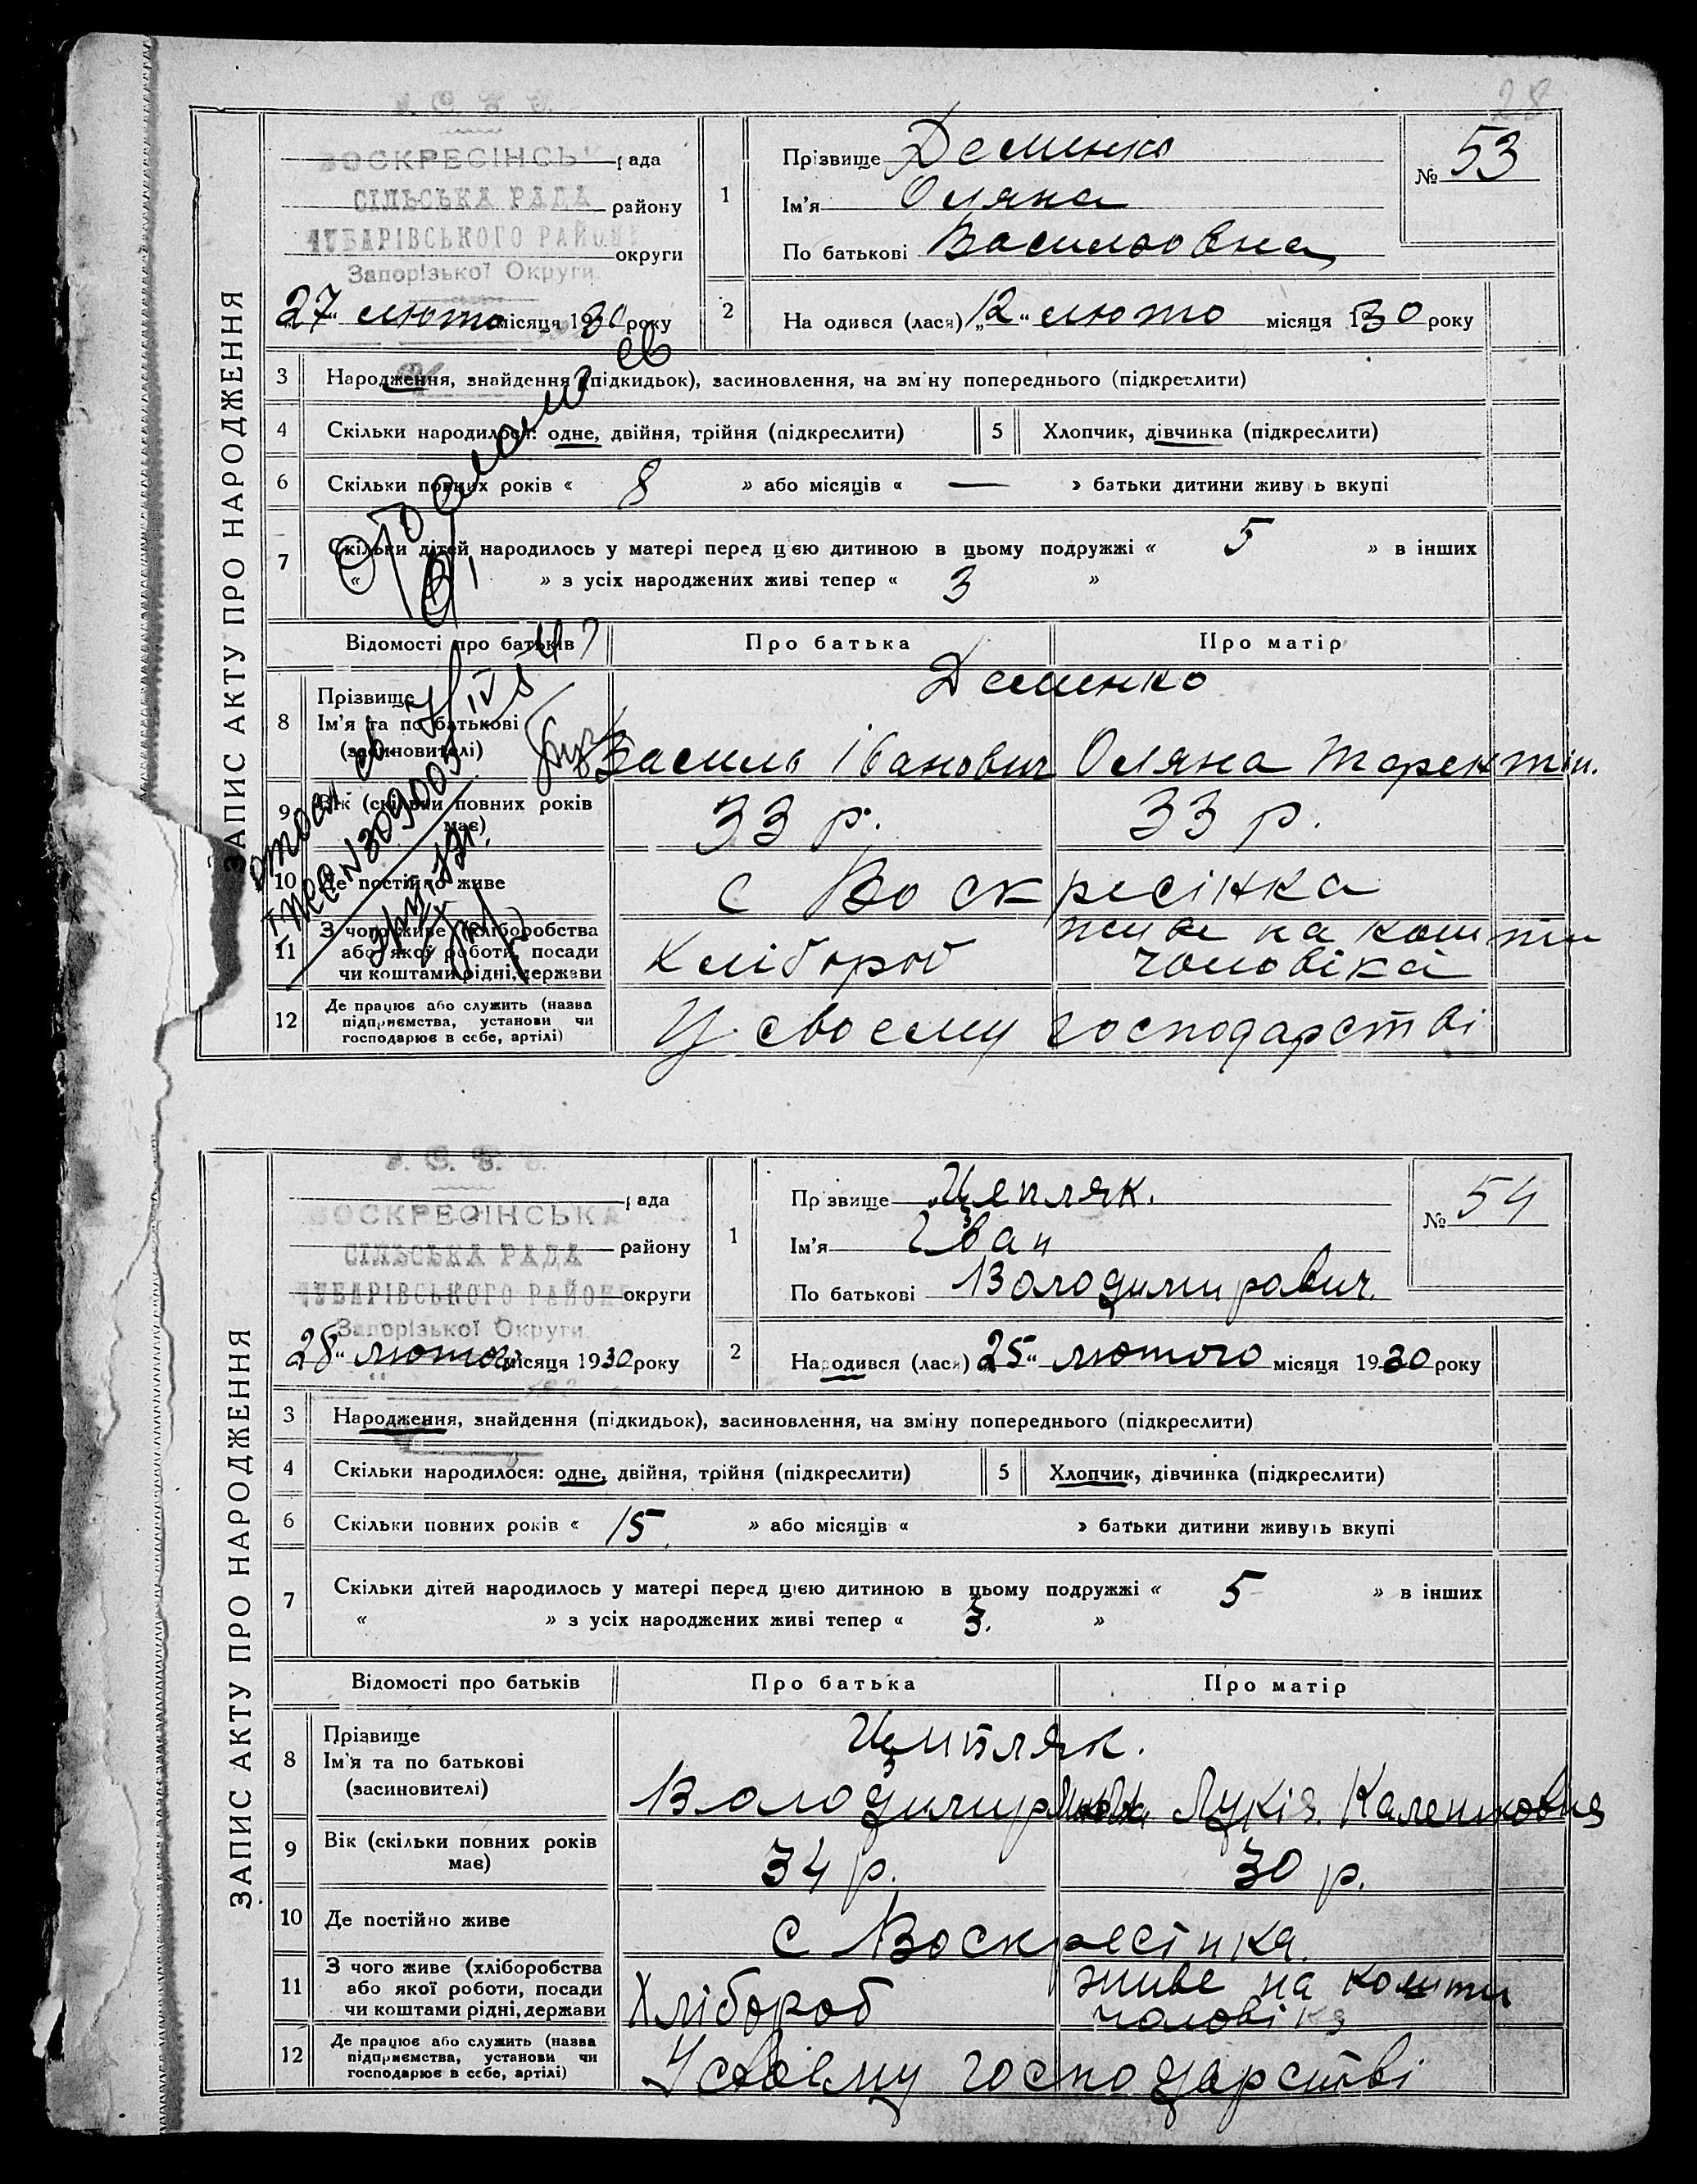 28
ЗАПИС АКТУ ПРО НАРОДЖЕННЯ
ВОСКРЕСІНСЬК рада
СІЛЬСЬКА РАДА району
ЧУБАРІВСЬКОГО РАЙОНУ округи
Запорізької Округи
„27“ люто місяця 1930 року
1
Прізвище Деменко
Ім'я Оляна
По батькові Васильовна
№ 53
2
На одився (лася) „12“ люто місяця 1930 року
3 Народження, знайдення (підкидьок), засиновлення, на зміну попереднього (підкреслити)
4 Скільки народилося: одне, двійня, трійня (підкреслити)
5 Хлопчик, дівчинка (підкреслити)
6 Скільки повних років « 8 » або місяців « — » батьки дитини живуть вкупі
7 Скільки дітей народилось у матері перед цією дитиною в цьому подружжі « 5 » в інших
« » з усіх народжених живі тепер « 3 »
Відомості про батьків Про батька Про матір
8 Прізвище
Ім'я та по батькові
(засиновителі)
Деменко
Василь Іванович Оляна Терентіи.
9 Вік (скільки повних років має)
33 р. 33 р.
10 Де постійно живе
с Воскресінка
11 З чого живе (хліборобства
або якої роботи, посади
чи коштами рідні, держави
Хлібороб
живе на кошти
чоловіка
12 Де працює або служить (назва
підприємства, установи чи
господарює в себе, артілі)
У своему господарстві
ЗАПИС АКТУ ПРО НАРОДЖЕННЯ
ВОСКРЕСІНСЬКА рада
СІЛЬСЬКА РАДА району
ЧУБАРІВСЬКОГО РАЙОНУ округи
Запорізької Округи
28“ лютого місяця 1930 року
1
Прізвище Цепляк.
Ім'я Іван
По батькові Володимирович.
№ 54
2
Народився (лася) „25“ лютого місяця 1930 року
3 Народження, знайдення (підкидьок), засиновлення, на зміну попереднього (підкреслити)
4 Скільки народилося: одне, двійня, трійня (підкреслити)
5 Хлопчик, дівчинка (підкреслити)
6 Скільки повних років « 15 » або місяців « » батьки дитини живуть вкупі
7 Скільки дітей народилось у матері перед цією дитиною в цьому подружжі « 5 » в інших
« » з усіх народжених живі тепер « 3. »
Відомості про батьків Про батька Про матір
8 Прізвище
Ім'я та по батькові
(засиновителі)
Ципляк.
Володимир Лукія. Калениковна
9 Вік (скільки повних років має)
34 р. 30 р.
10 Де постійно живе
с Воскресінка.
11 З чого живе (хліборобства
або якої роботи, посади
чи коштами рідні, держави
Хлібороб
живе на кошти
чоловіка
12 Де працює або служить (назва
підприємства, установи чи
господарює в себе, артілі)
У своему господарстві